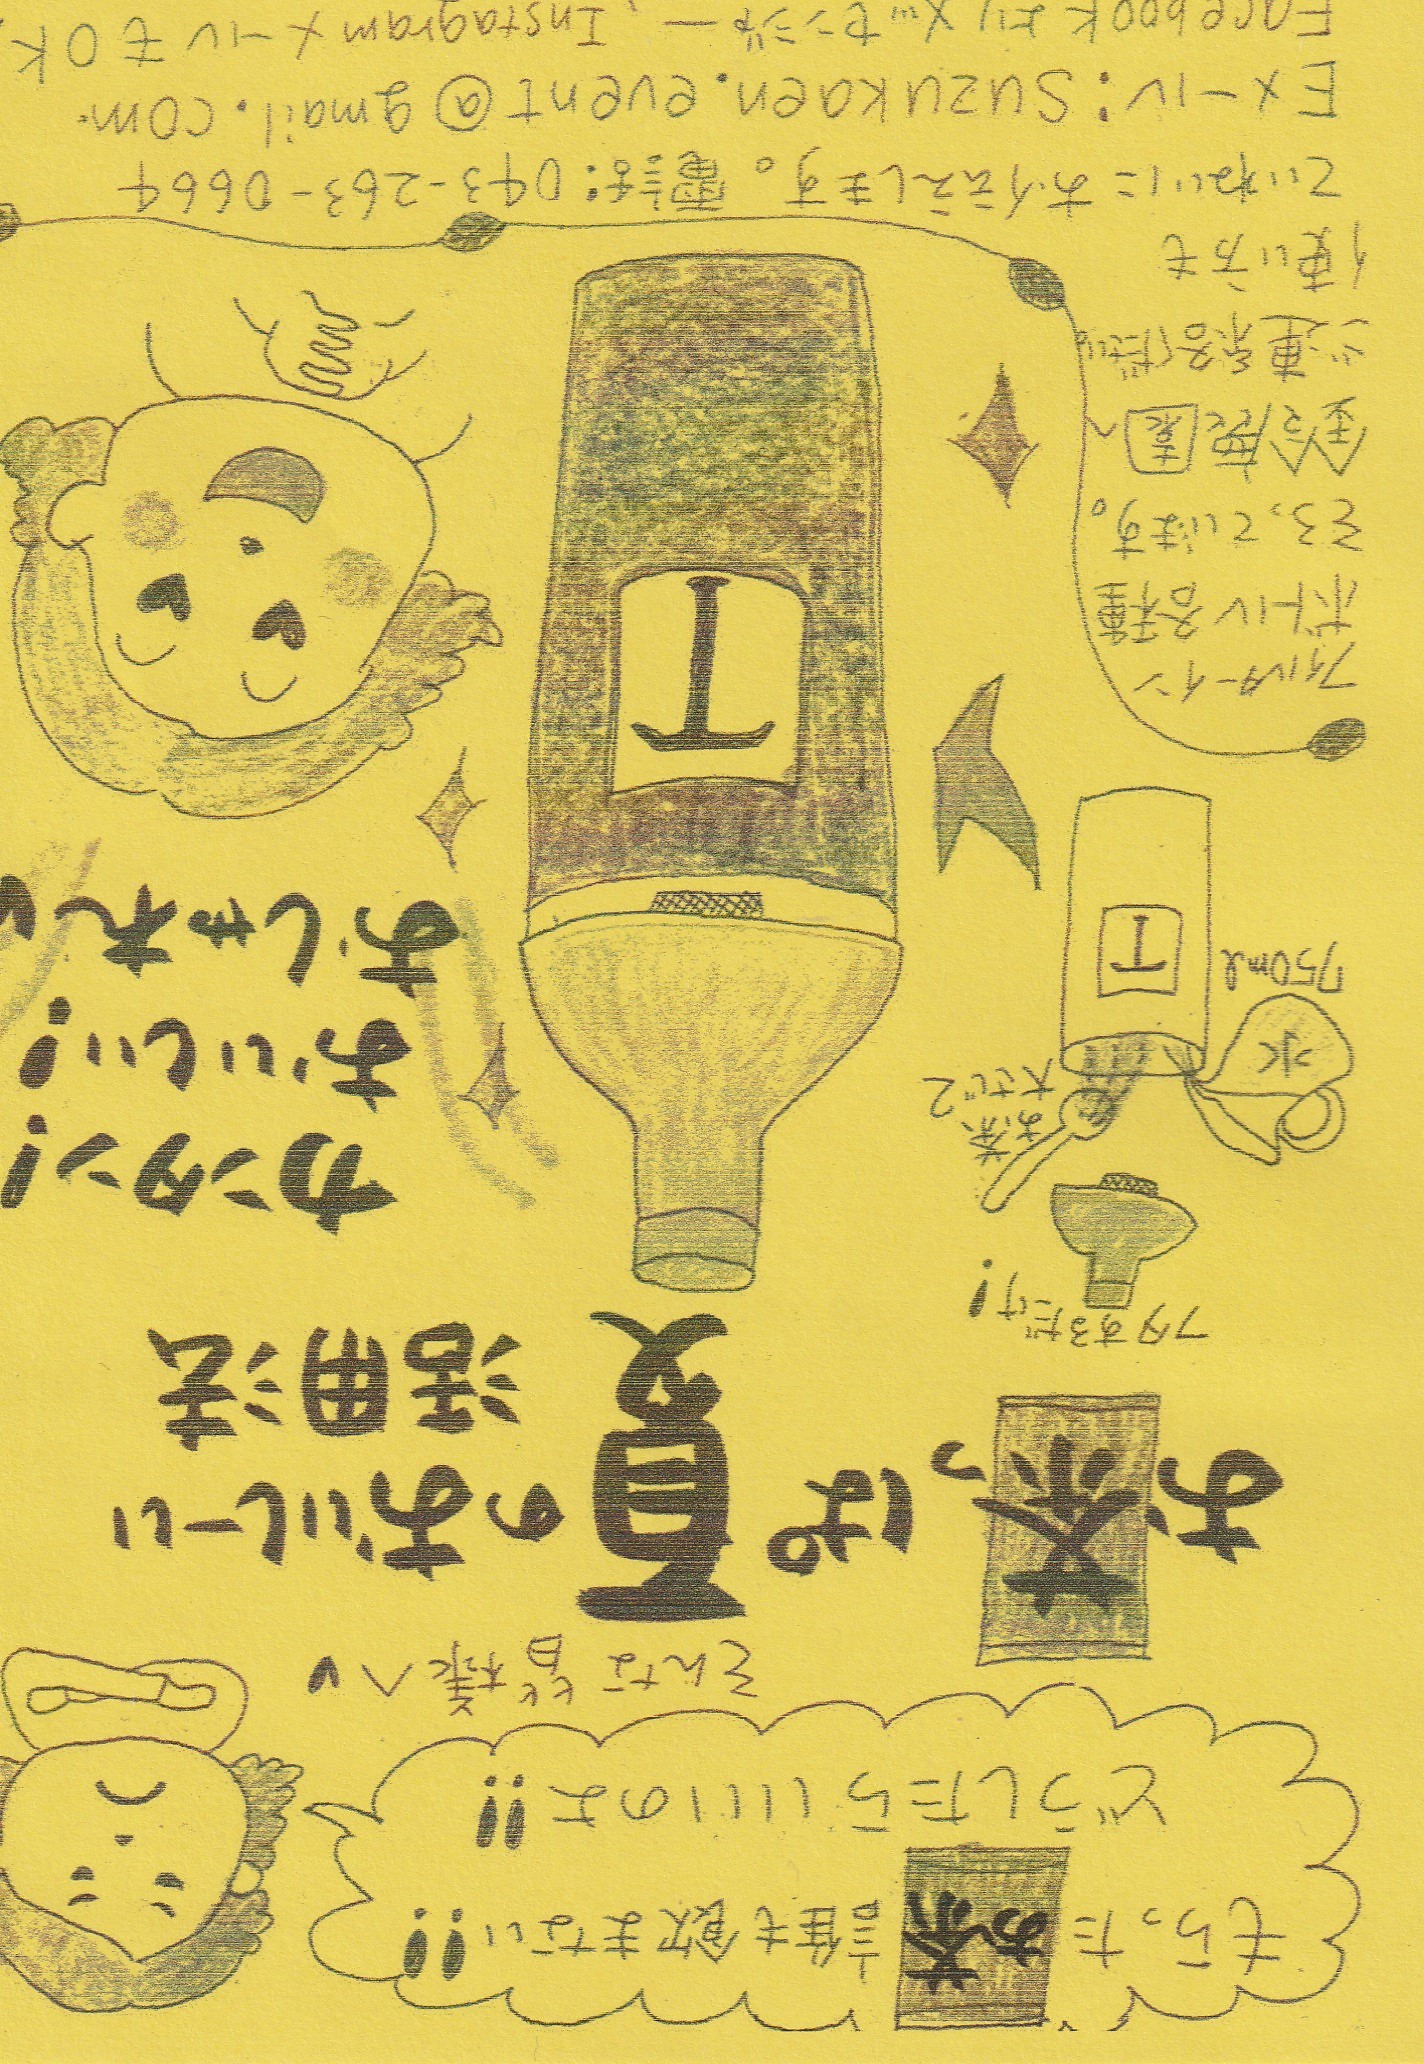 もらったお茶誰も飲まない!!
どうしたらいいのよ!!
そんな皆様へ♥
お茶っぱ
夏の
おいしーい
活用法
カンタン!
おいしい!
おしゃれ
フタするだけ!
お茶
大さじ2
水
750ml
T
T
フィルターイン
ボトル各種
そろっています。
園へ
ご連絡ください
使い方も
ていねいにお伝えします。電話:043-263-0664
Eメール:Suzukaen.event@gmail.com
Facebookよりメッセージ、InstagramメールもOK